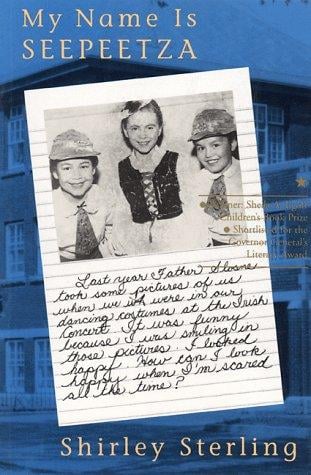 My Name Is
SEEPEETZA
Winner: Sheila A. Egoff
Children's Book Prize
• Shortlisted for the
Governor General's
Literary Award
Last year Father Sloane
took some pictures of us
when we wh were in our
dancing costumes at the Irish
Concert. It was funny
because I was smiling in
those pictures. I looked
happy. How can I look
happy when I'm scared
all the time?
Shirley Sterling